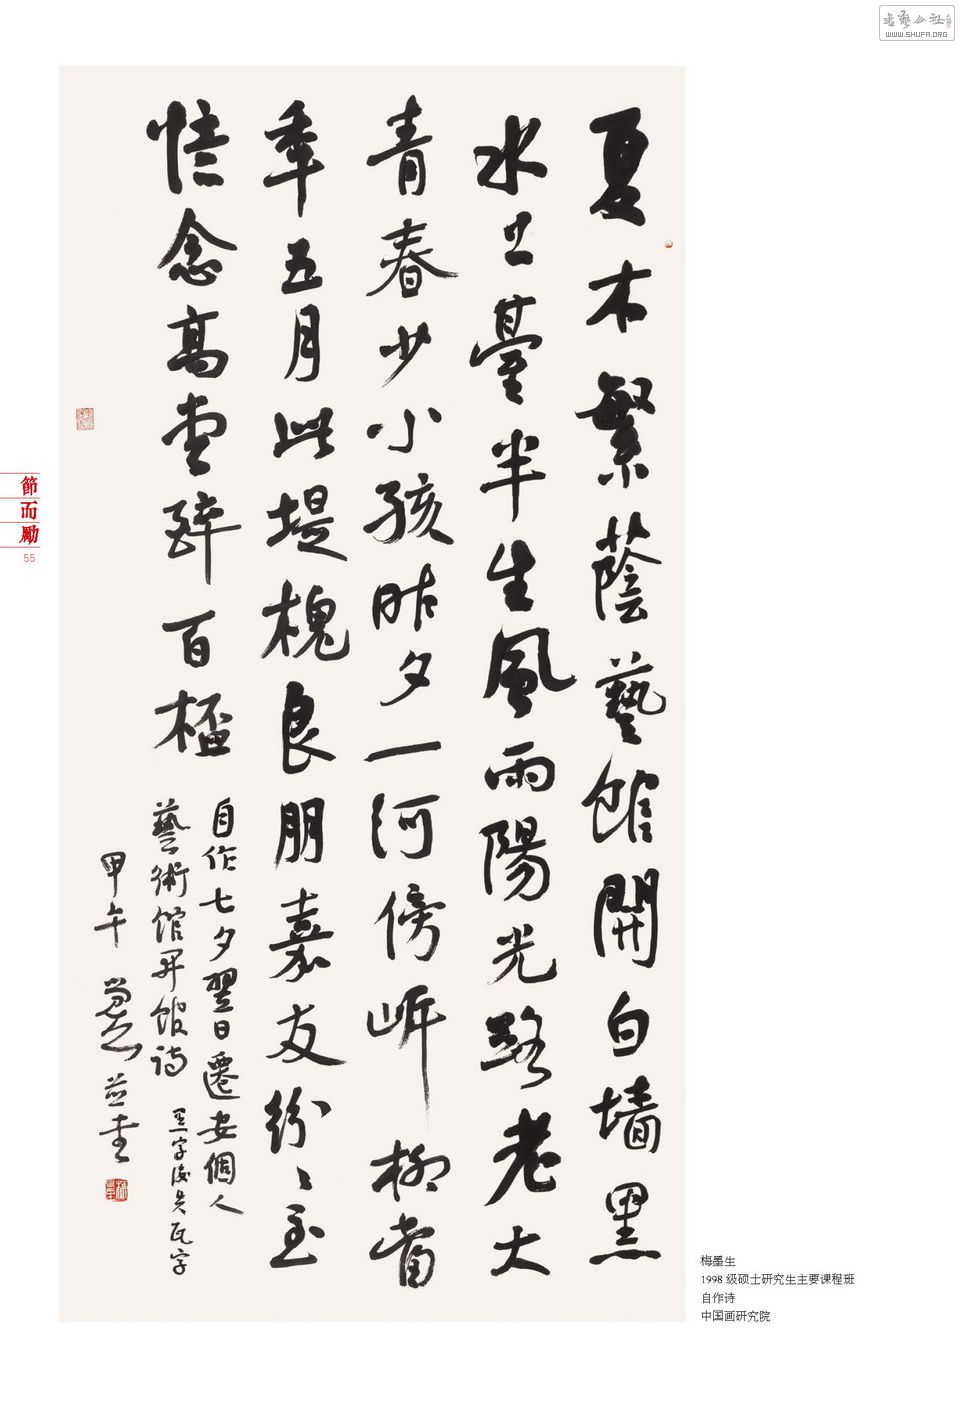 書藝公社
WWW.SHUFA.ORG
夏木繁蔭藝館開白墻黑
水上臺半生風雨陽光路老大
青春少小孩昨夕一河傍岍柳當
季五月此堤槐良朋嘉友紛〻至
惦念高堂醉百桮
自作七夕翌日遷安個人
藝術館開館詩
黑字後失瓦字
甲午 並書
節而勵
55
梅墨生
1998 级硕士研究生主要课程班
自作诗
中国画研究院